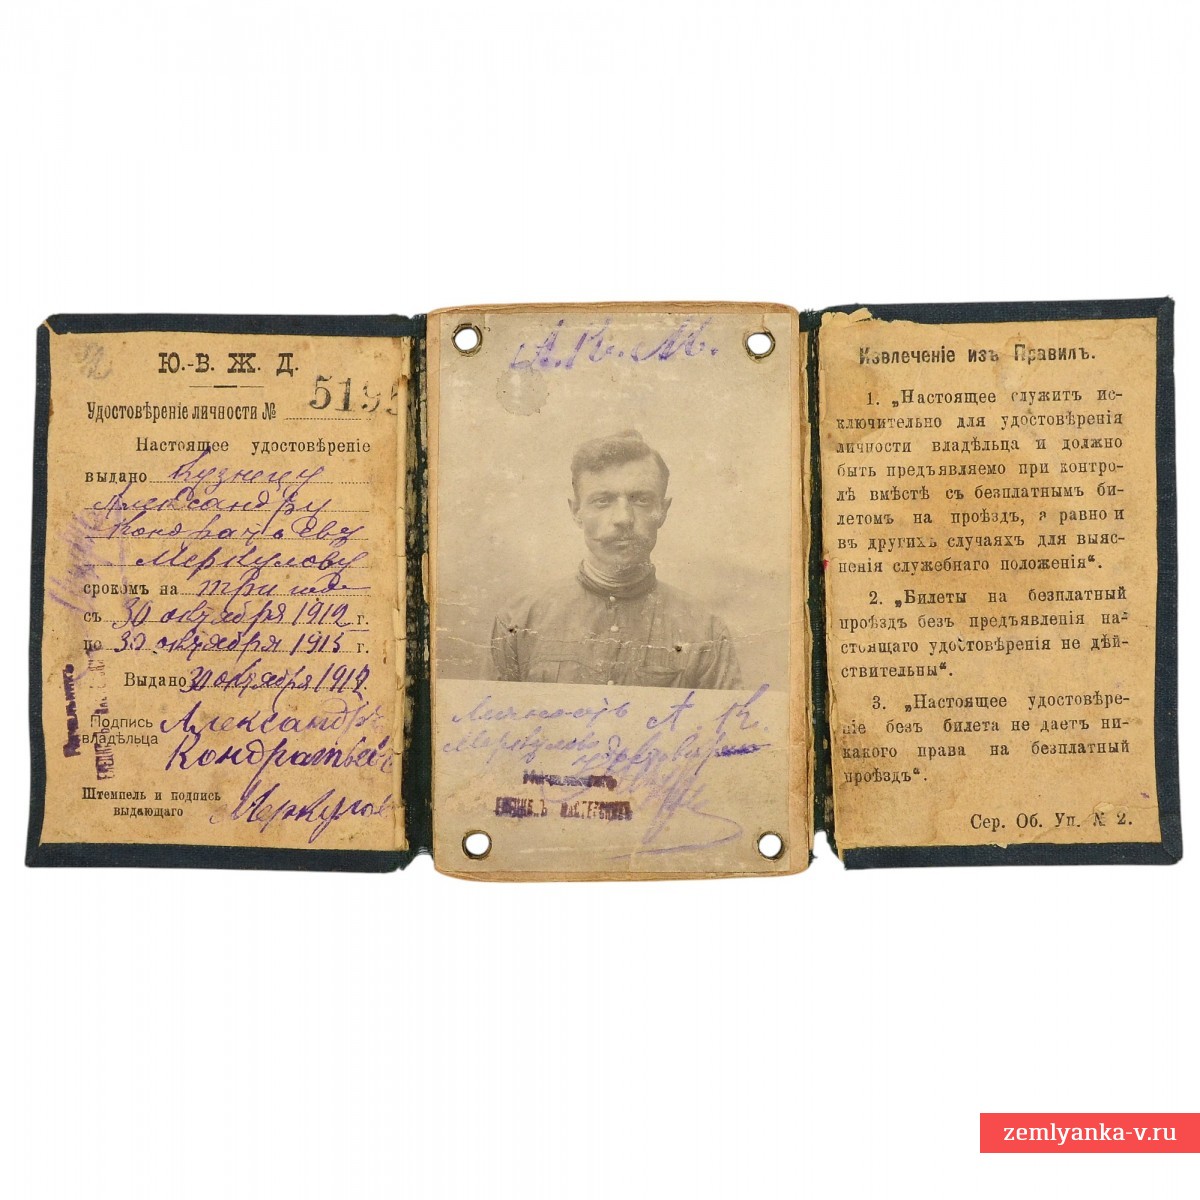 Ю.-В. Ж. Д.
Удостовѣреніе личности № 5195
Настоящее удостовѣреніе
выдано Кузнецу
Александру
Кондратьеву
Меркулову
срокомъ на три года
съ 30 октября 1912 г.
по 30 октября 1915 г.
Выдано 30 октября 1912 г.
Подпись Александръ
владѣльца Кондратьевъ
Штемпель и подпись
выдающаго Меркулов
Начальникъ
А. К. М.
Личность А. К.
Меркулова
Начальникъ
мастерскихъ
Извлеченіе изъ Правилъ.
1. „Настоящее служитъ ис-
ключительно для удостовѣренія
личности владѣльца и должно
быть предъявляемо при контро-
лѣ вмѣстѣ съ безплатнымъ би-
летомъ на проѣздъ, а равно и
въ другихъ случаяхъ для выяс-
ненія служебнаго положенія“.
2. „Билеты на безплатный
проѣздъ безъ предъявленія на-
стоящаго удостовѣренія не дѣй-
ствительны“.
3. „Настоящее удостовѣре-
ніе безъ билета не даетъ ни-
какого права на безплатный
проѣздъ“.
Сер. Об. Уп. № 2.
zemlyanka-v.ru